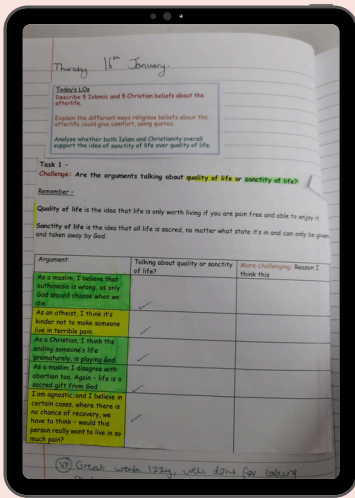 Thursday 16th January.
Today's LOs
Describe 5 Islamic and 5 Christian beliefs about the
afterlife.
Explain the different ways religious beliefs about the
afterlife could give comfort, using quotes.
Analyse whether both Islam and Christianity overall
support the idea of sanctity of life over quality of life.
Task 1 -
Challenge: Are the arguments talking about quality of life or sanctity of life?
Remember -
Quality of life is the idea that life is only worth living if you are pain free and able to enjoy it.
Sanctity of life is the idea that all life is sacred, no matter what state it's in and can only be given
and taken away by God.
Argument:
Talking about quality or sanctity
of life?
More challenging: Reason I
think this
As a muslim, I believe that
euthanasia is wrong, as only
God should choose when we
die.
As an atheist, I think it's
kinder not to make someone
live in terrible pain.
As a Christian, I think the
ending someone's life
prematurely, is playing God.
As a muslim I disagree with
abortion too. Again - life is a
sacred gift from God
I am agnostic, and I believe in
certain cases, where there is
no chance of recovery, we
have to think - would this
person really want to live in so
much pain?
Great work Izzy, well done for